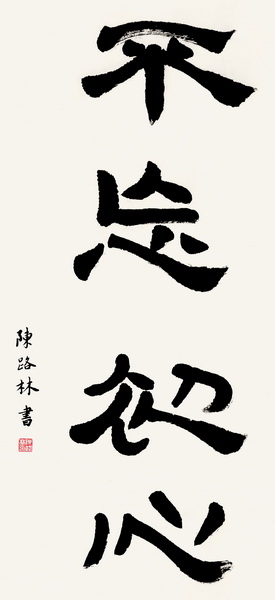 不忘初心
陳路林書